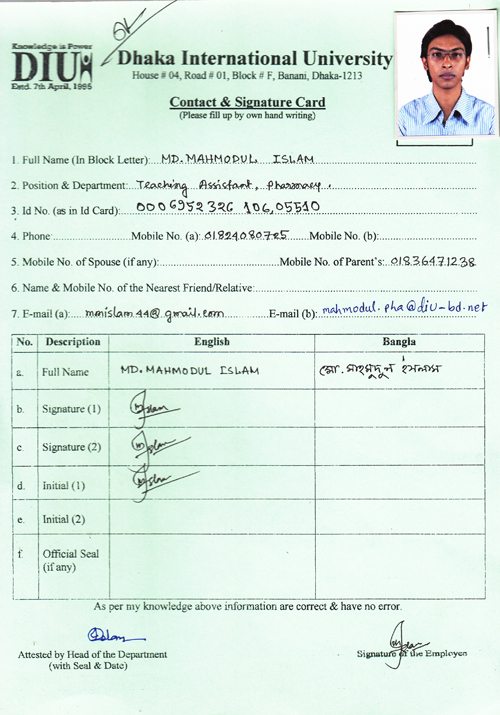 Knowledge is Power
DIU
Estd. 7th April, 1995
Dhaka International University
House # 04, Road # 01, Block # F, Banani, Dhaka-1213
Contact & Signature Card
(Please fill up by own hand writing)
1. Full Name (In Block Letter): MD. MAHMODUL ISLAM
2. Position & Department: Teaching Assistant, Pharmacy.
3. Id No. (as in Id Card): 0006952326 106,05510
4. Phone Mobile No. (a): 01824080725 Mobile No. (b):
5. Mobile No. of Spouse (if any): Mobile No. of Parent's: 01836471238
6. Name & Mobile No. of the Nearest Friend/Relative:
7. E-mail (a): mmislam44@gmail.com E-mail (b): mahmodul.pha@diu-bd.net
No. Description English Bangla
a. Full Name MD. MAHMODUL ISLAM মো. মাহমুদুল ইসলাম
b. Signature (1) Islam
c. Signature (2) Islam
d. Initial (1) Islam
e. Initial (2)
f. Official Seal
(if any)
As per my knowledge above information are correct & have no error.
Attested by Head of the Department
(with Seal & Date)
Signature of the Employee